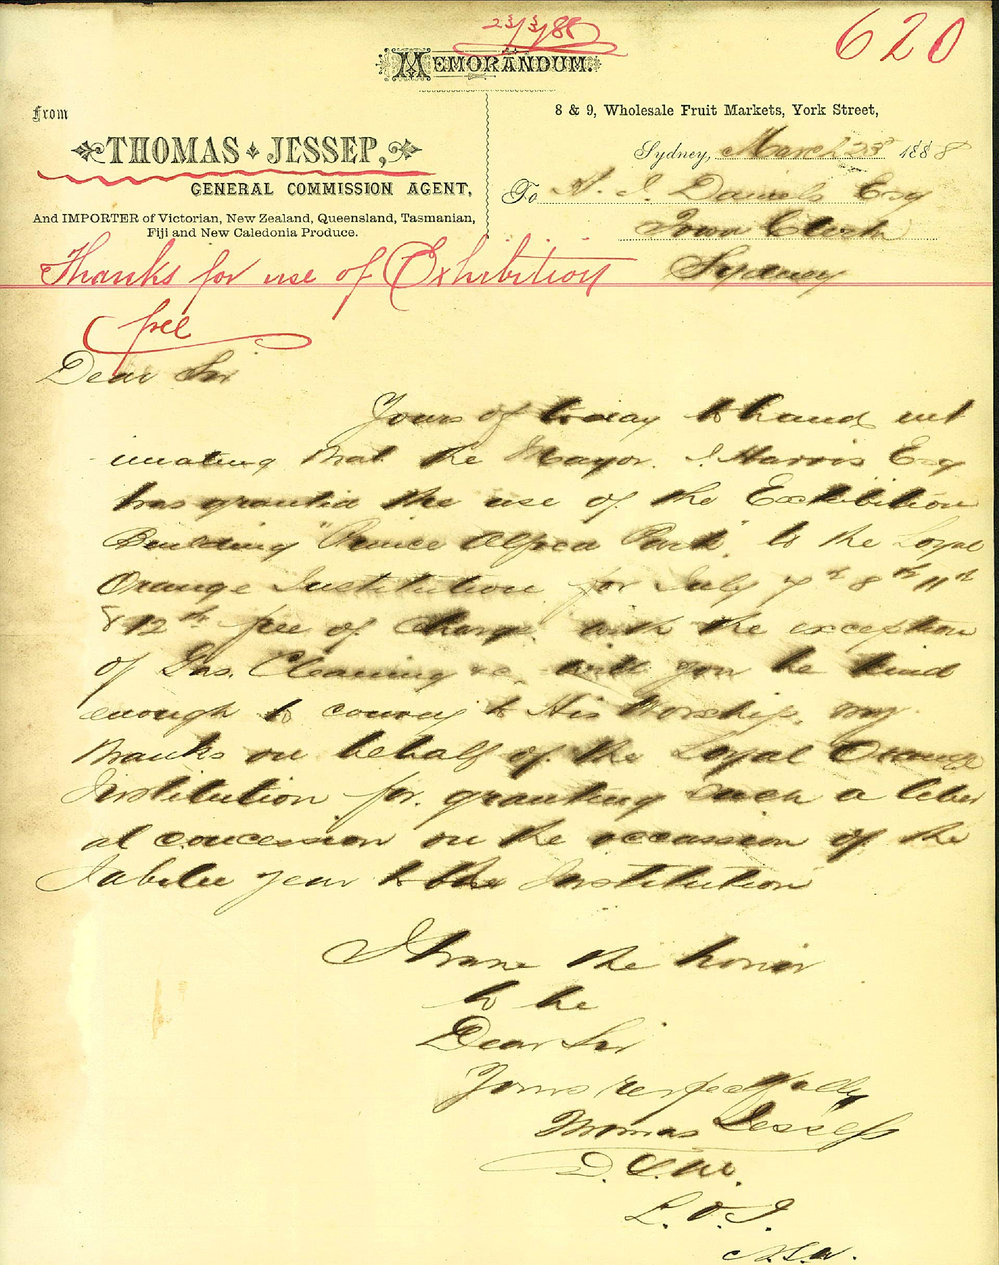 23/3/88
620
MEMORANDUM.
From
THOMAS JESSEP,
GENERAL COMMISSION AGENT,
And IMPORTER of Victorian, New Zealand, Queensland, Tasmanian,
Fiji and New Caledonia Produce.
8 & 9, Wholesale Fruit Markets, York Street,
Sydney, March 23rd 1888
To H. J. Daniels Esq
Town Clerk
Sydney
Thanks for use of Exhibition
free
Dear Sir
Yours of today to hand int
imating that the Mayor. J Harris Esq
has granted the use of the Exhibition
Building "Prince Alfred Park" to the Loyal
Orange Institution for July 7th 8th 11th
& 12th free of charge with the exception
of Gas, Cleaning &c, will you be kind
enough to convey to His Worship, my
thanks on behalf of the Loyal Orange
Institution for granting such a liber
al concession on the occassion of the
Jubilee year to the Institution
I have the honor
to be
Dear Sir
Yours respectfully
Thomas Jessep
L. O. I.
N.S.W.